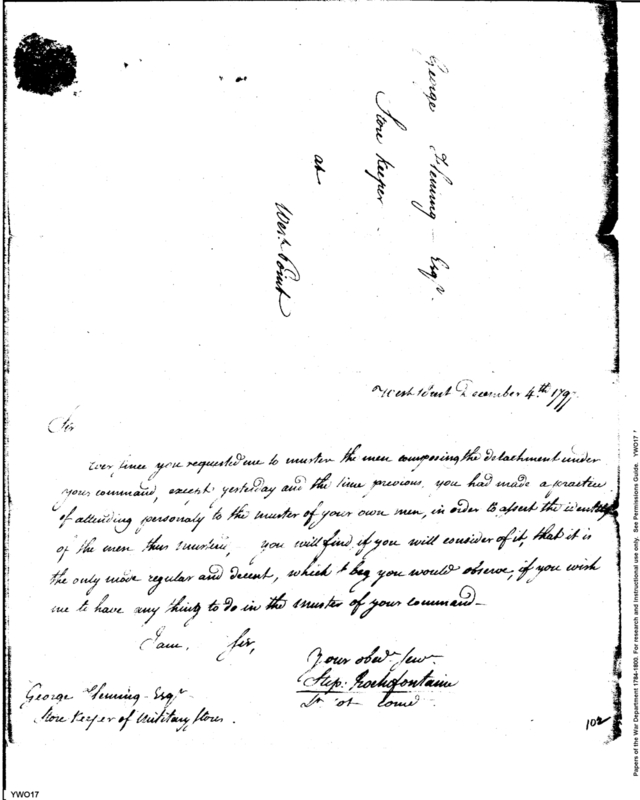 George Fleming Esqr.
Store Keeper
at
West Point
West Point December 4th 1797
Sir
ever since you requested me to muster the men composing the detachment under
your command, except yesterday and the time previous, you had made a practice
of attending personaly to the muster of your own men, in order to assert the identity
of the men thus mustered, you will find if you will consider of it, that it is
the only mode regular and decent, which I beg you would observe, if you wish
me to have any thing to do in the muster of your command –
I am, Sir,
Your obedt. Servt.
Step: Rochefontaine
Lt Col Comd
George Fleming Esqr
Store Keeper of Military Stores.
102
Papers of the War Department 1784-1800. For research and Instructional use only. See Permissions Guide. YWO17
YWO17